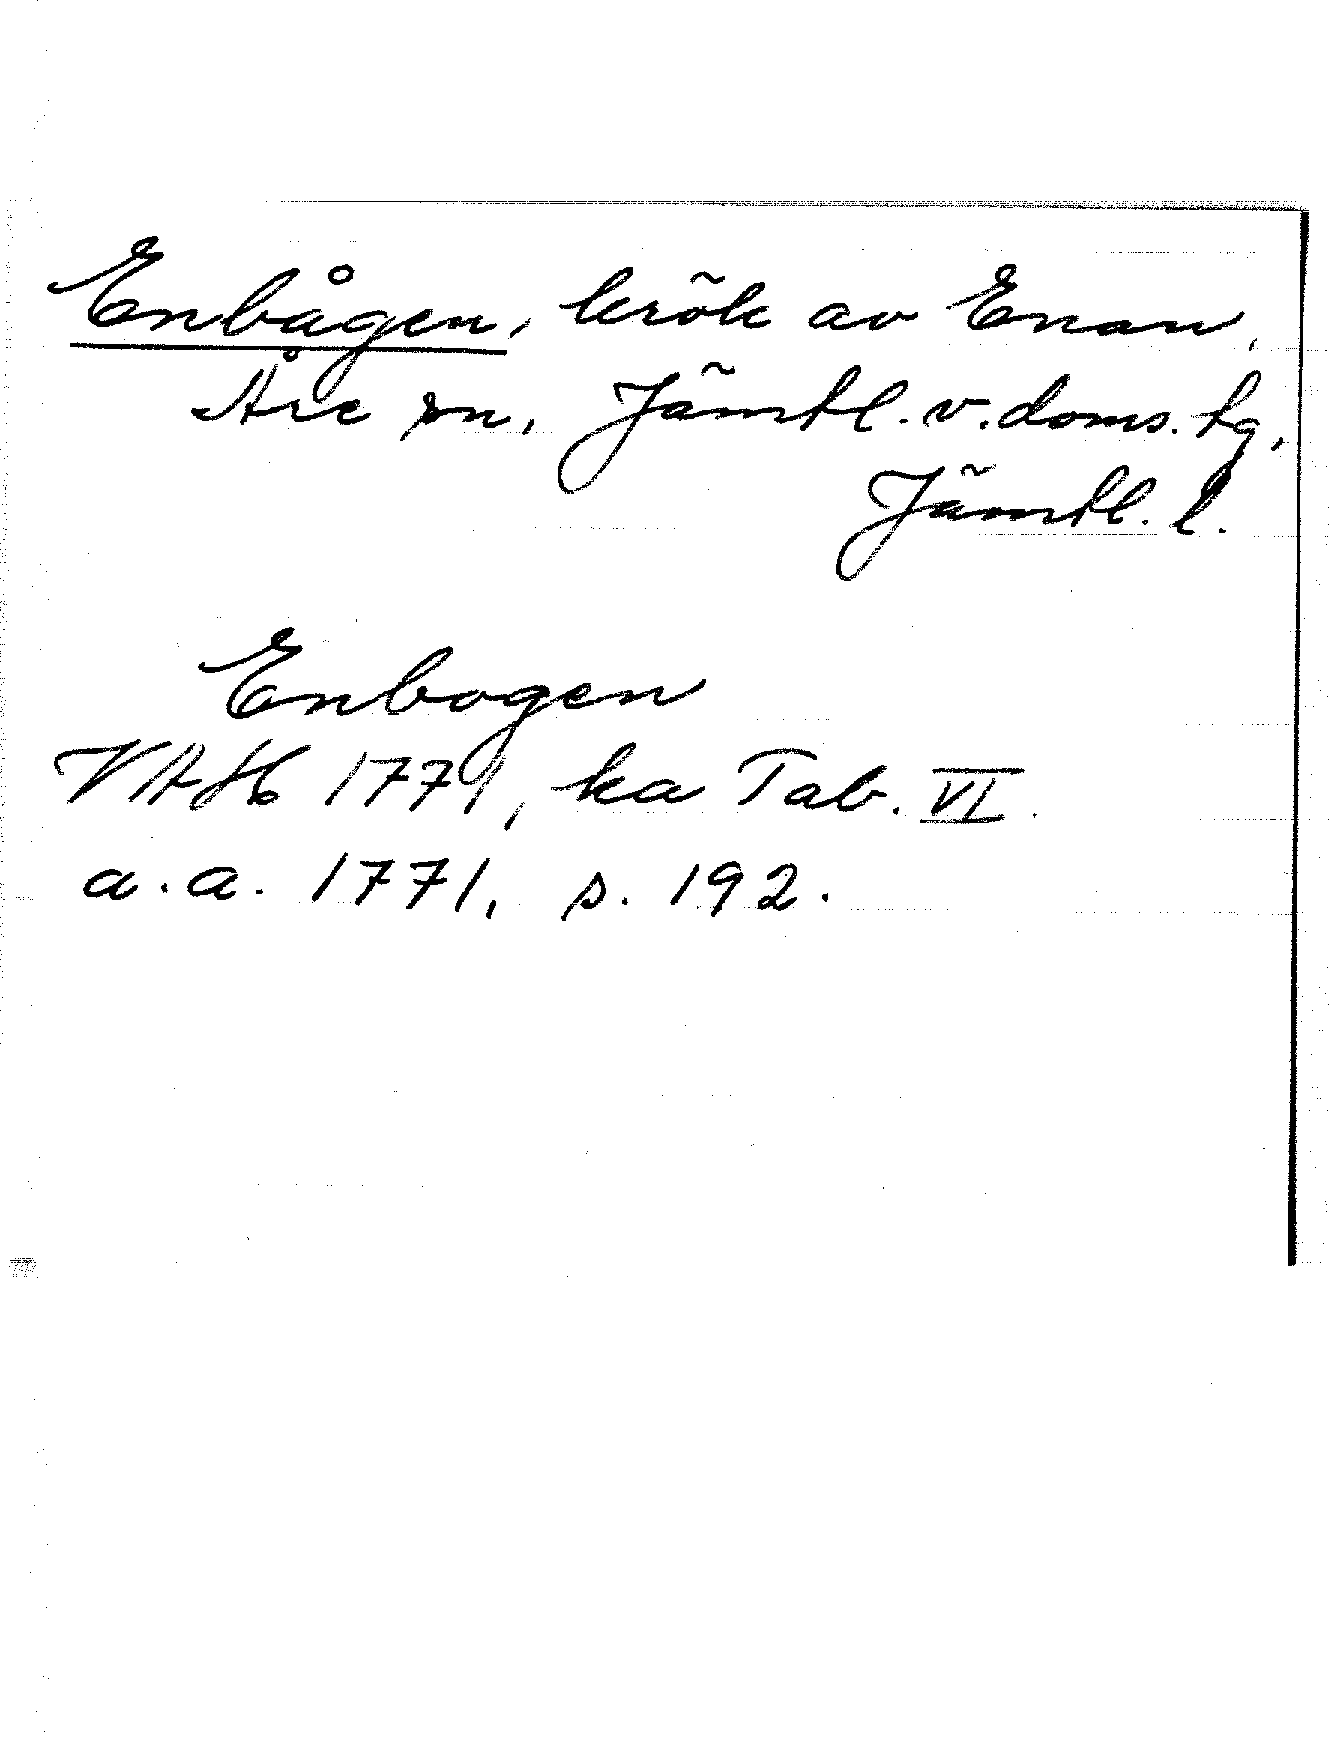 Enbågen, krök av Enan,
Åre sn, Jämtl. v. doms. tg,
Jämtl. l.
Enbogen
VAH 1771, ka Tab. VI.
a.a. 1771, s. 192.